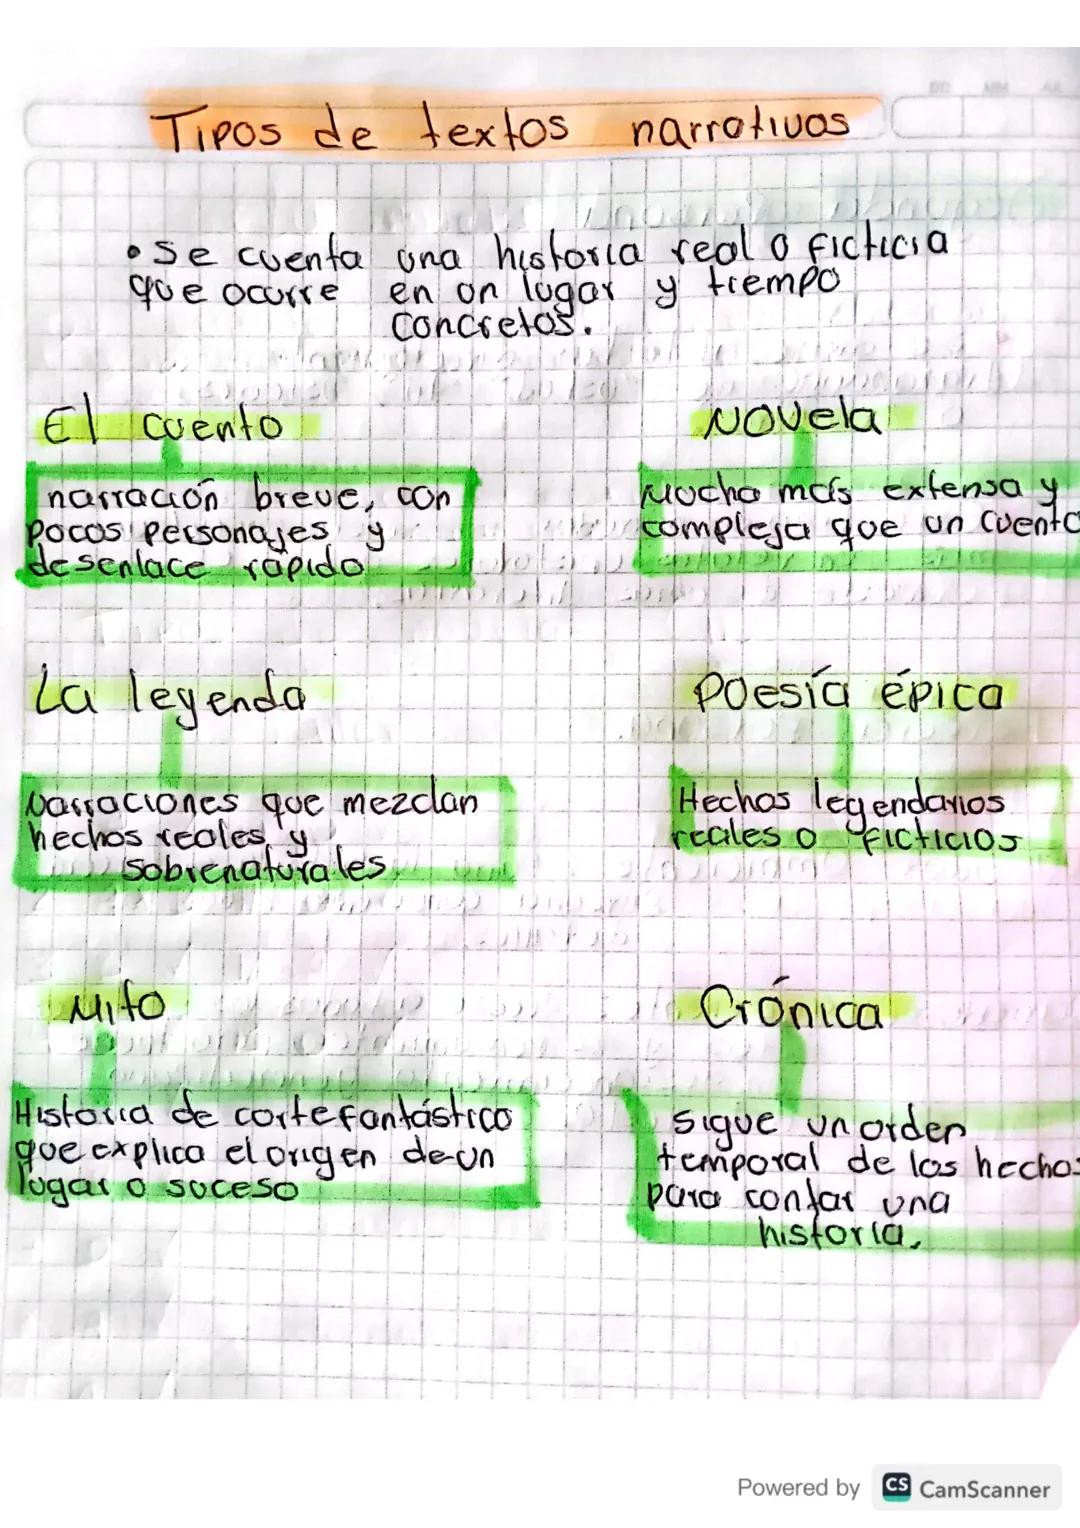 Tipos de textos narrativos
• Se cuenta una historia real o ficticia
que ocurre en un lugar y tiempo
concretos.
El cuento
narración breve, con
pocos personajes y
desenlace rápido
Novela
Mucho más extensa y
compleja que un cuento
La leyenda
Narraciones que mezclan
hechos reales y
sobrenaturales
Poesía épica
Hechos legendarios
reales o ficticios
Mito
Historia de corte fantástico
que explica el origen de un
lugar o suceso
Crónica
sigue un orden
temporal de los hechos
para contar una
historia.
Powered by CS CamScanner